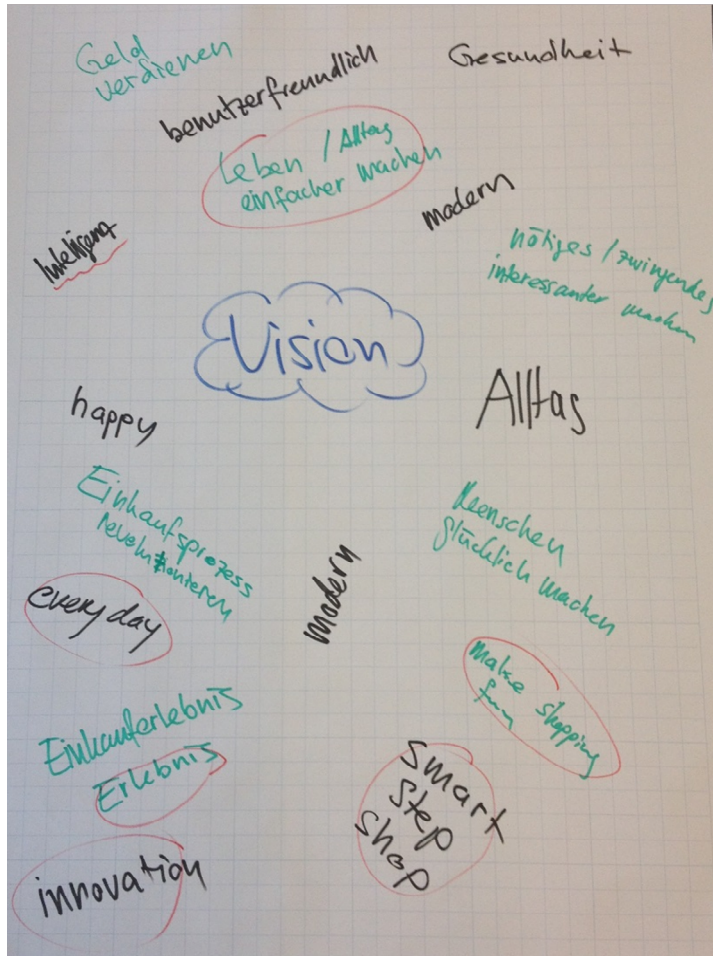 Geld
verdienen
benutzerfreundlich
Gesundheit
Leben / Alltag
einfacher machen
modern
nötiges / zwingendes
interessanter machen
Vision
happy
Alltag
Einkaufsprozess
Menschen
glücklich machen
modern
everyday
make shopping
fun
Einkauferlebnis
Erlebnis
smart
step
shop
innovation